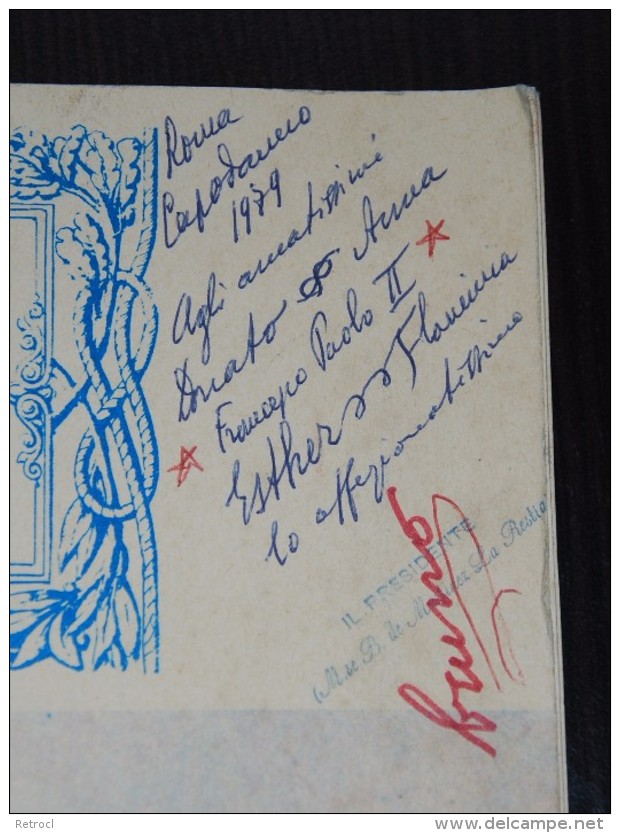 Roma
Capodanno
1979
Agli amatissimi
Donato & Anna
Francesco Paolo II
Esther Flaminia
lo affezionatissimo
Bruno
IL PRESIDENTE
(M.se B. de La Restia
Retrocl
www.delcampe.net